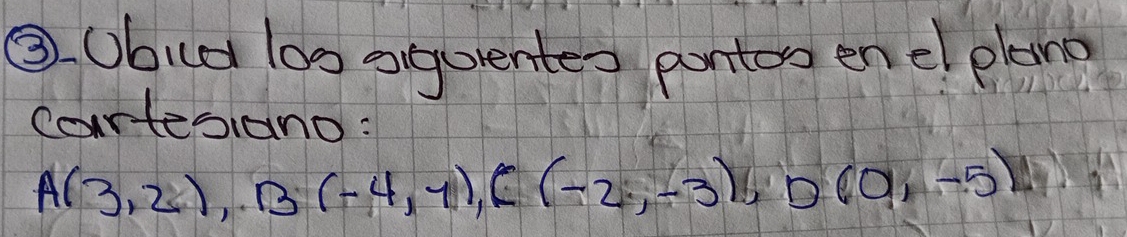 ③-Ubica los siguientes puntos en el plano
cartesiano:
A(3,2), B (-4, 1), C (-2, -3), D (0, -5)